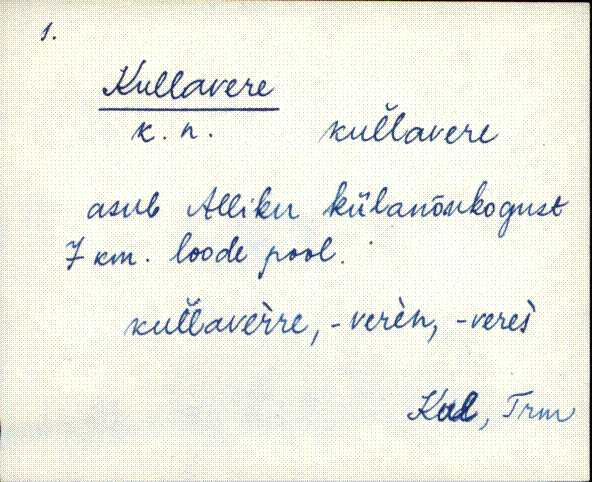 1.
Kullavere
k. n. kul̆lavere
asub Alliku külanõukogust
7 km. loode pool.
kul̆lavèrre, -verèn, -verès̀
Kul, Trm